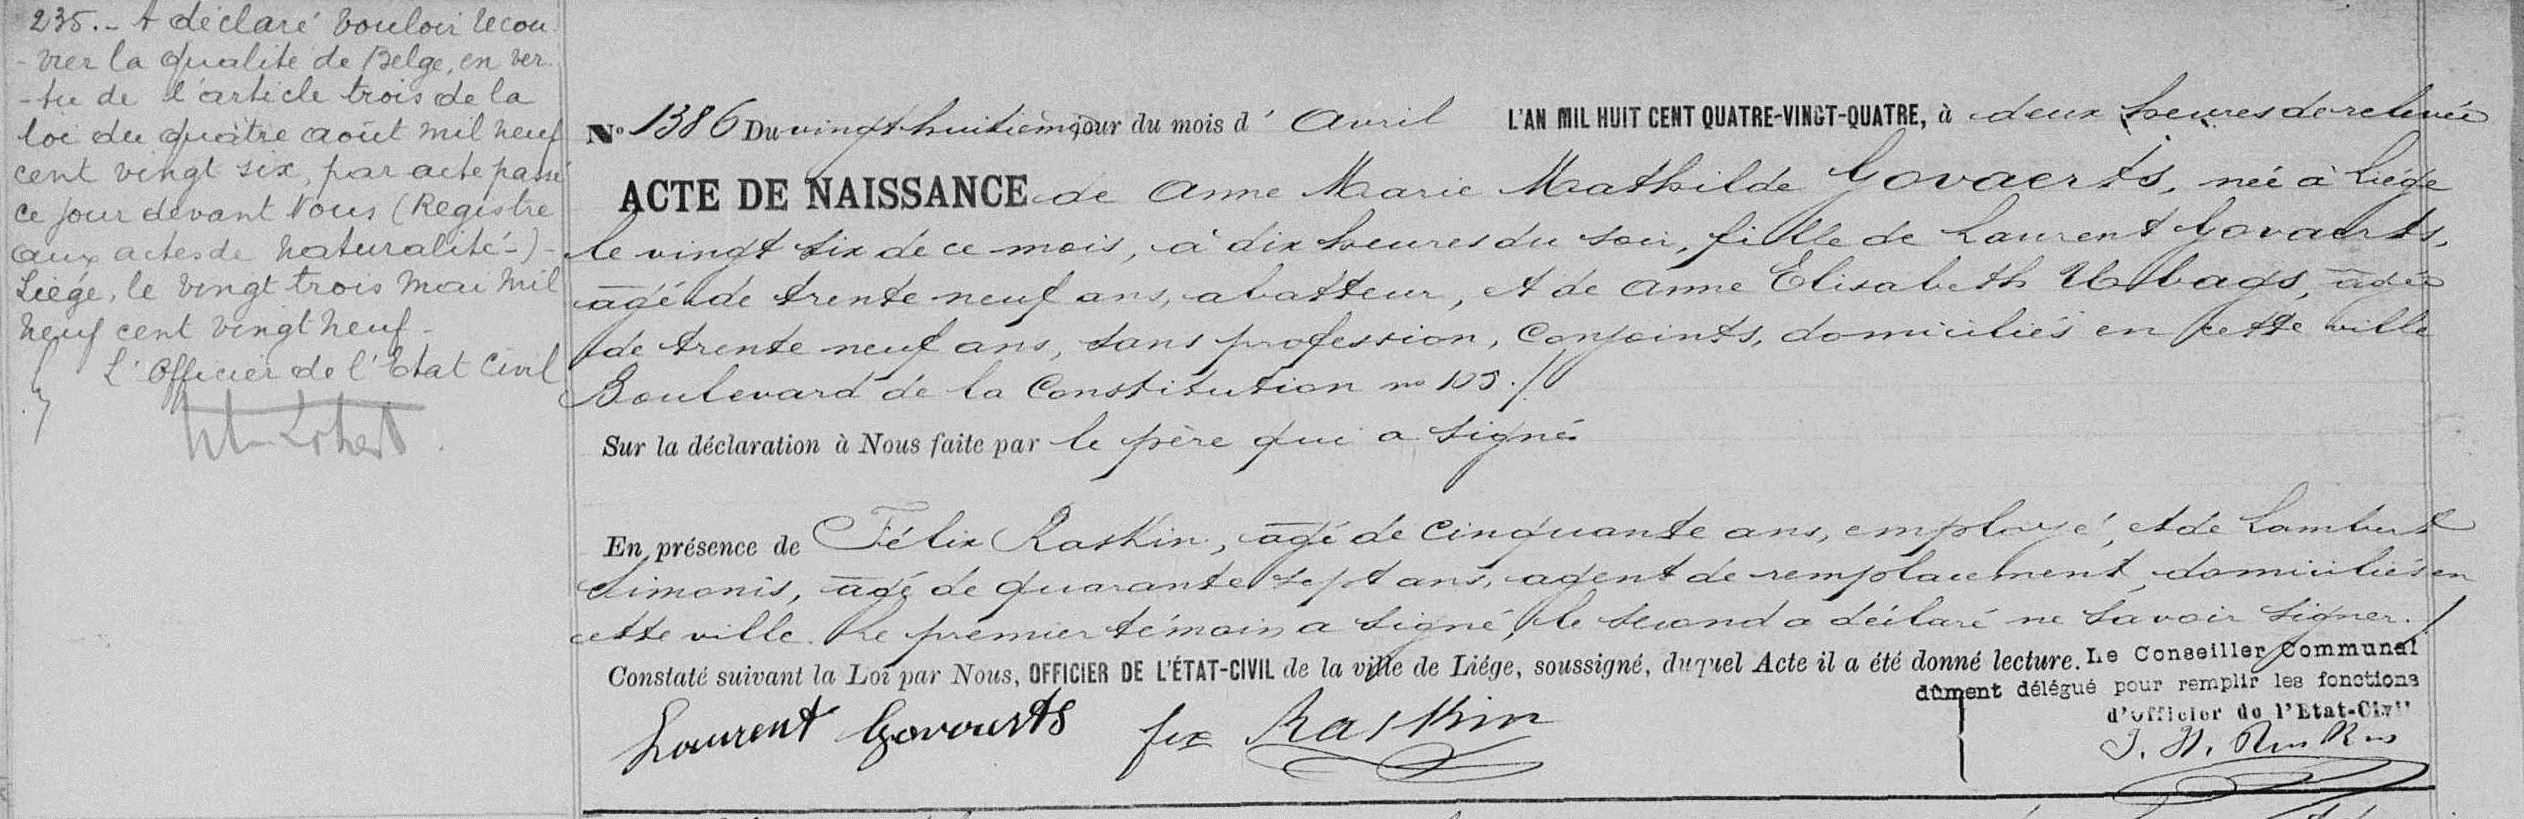 235. - A déclaré vouloir recou
- vrer la qualité de Belge, en ver
- tu de l'article trois de la
loi du quatre août mil neuf
cent vingt six, par acte passé
ce jour devant Nous (Registre
aux actes de naturalité -) -
Liége, le vingt trois mai mil
neuf cent vingt neuf -
L'Officier de l'Etat Civil
N° 1386 Du vingt huitième jour du mois d' Avril L'AN MIL HUIT CENT QUATRE-VINGT-QUATRE, à deux heures de relevée
ACTE DE NAISSANCE de Anne Marie Mathilde Govaerts, née à Liége
le vingt six de ce mois, à dix heures du soir, fille de Laurent Govaerts,
âgé de trente neuf ans, abatteur, et de Anne Elisabeth Ubags, âgée
de trente neuf ans, sans profession, conjoints, domiciliés en cette ville
Boulevard de la Constitution no 105 ./
Sur la déclaration à Nous faite par le père qui a signé
En présence de Félix Raskin, âgé de cinquante ans, employé, et de Lambert
Simonis, âgé de quarante sept ans, agent de remplacement, domiciliés en
cette ville. Le premier témoin a signé, le second a déclaré ne savoir signer. /
Constaté suivant la Loi par Nous, OFFICIER DE L'ÉTAT-CIVIL de la ville de Liége, soussigné, duquel Acte il a été donné lecture. Le Conseiller Communal
dûment délégué pour remplir les fonctions
d'Officier de l'Etat-Civil
Laurent Govaerts fex Raskin
J. H.